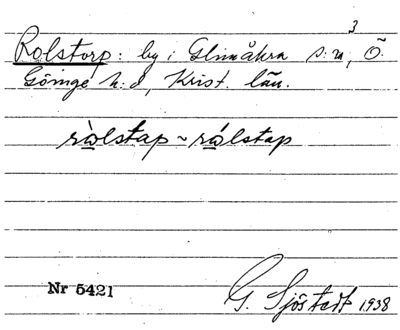 3
Rolstorp: by i Glimåkra s:n, Ö.
Göinge h:d, Krist. län.
ràlstap ~ rálstap
Nr 5421
G. Sjöstedt 1938